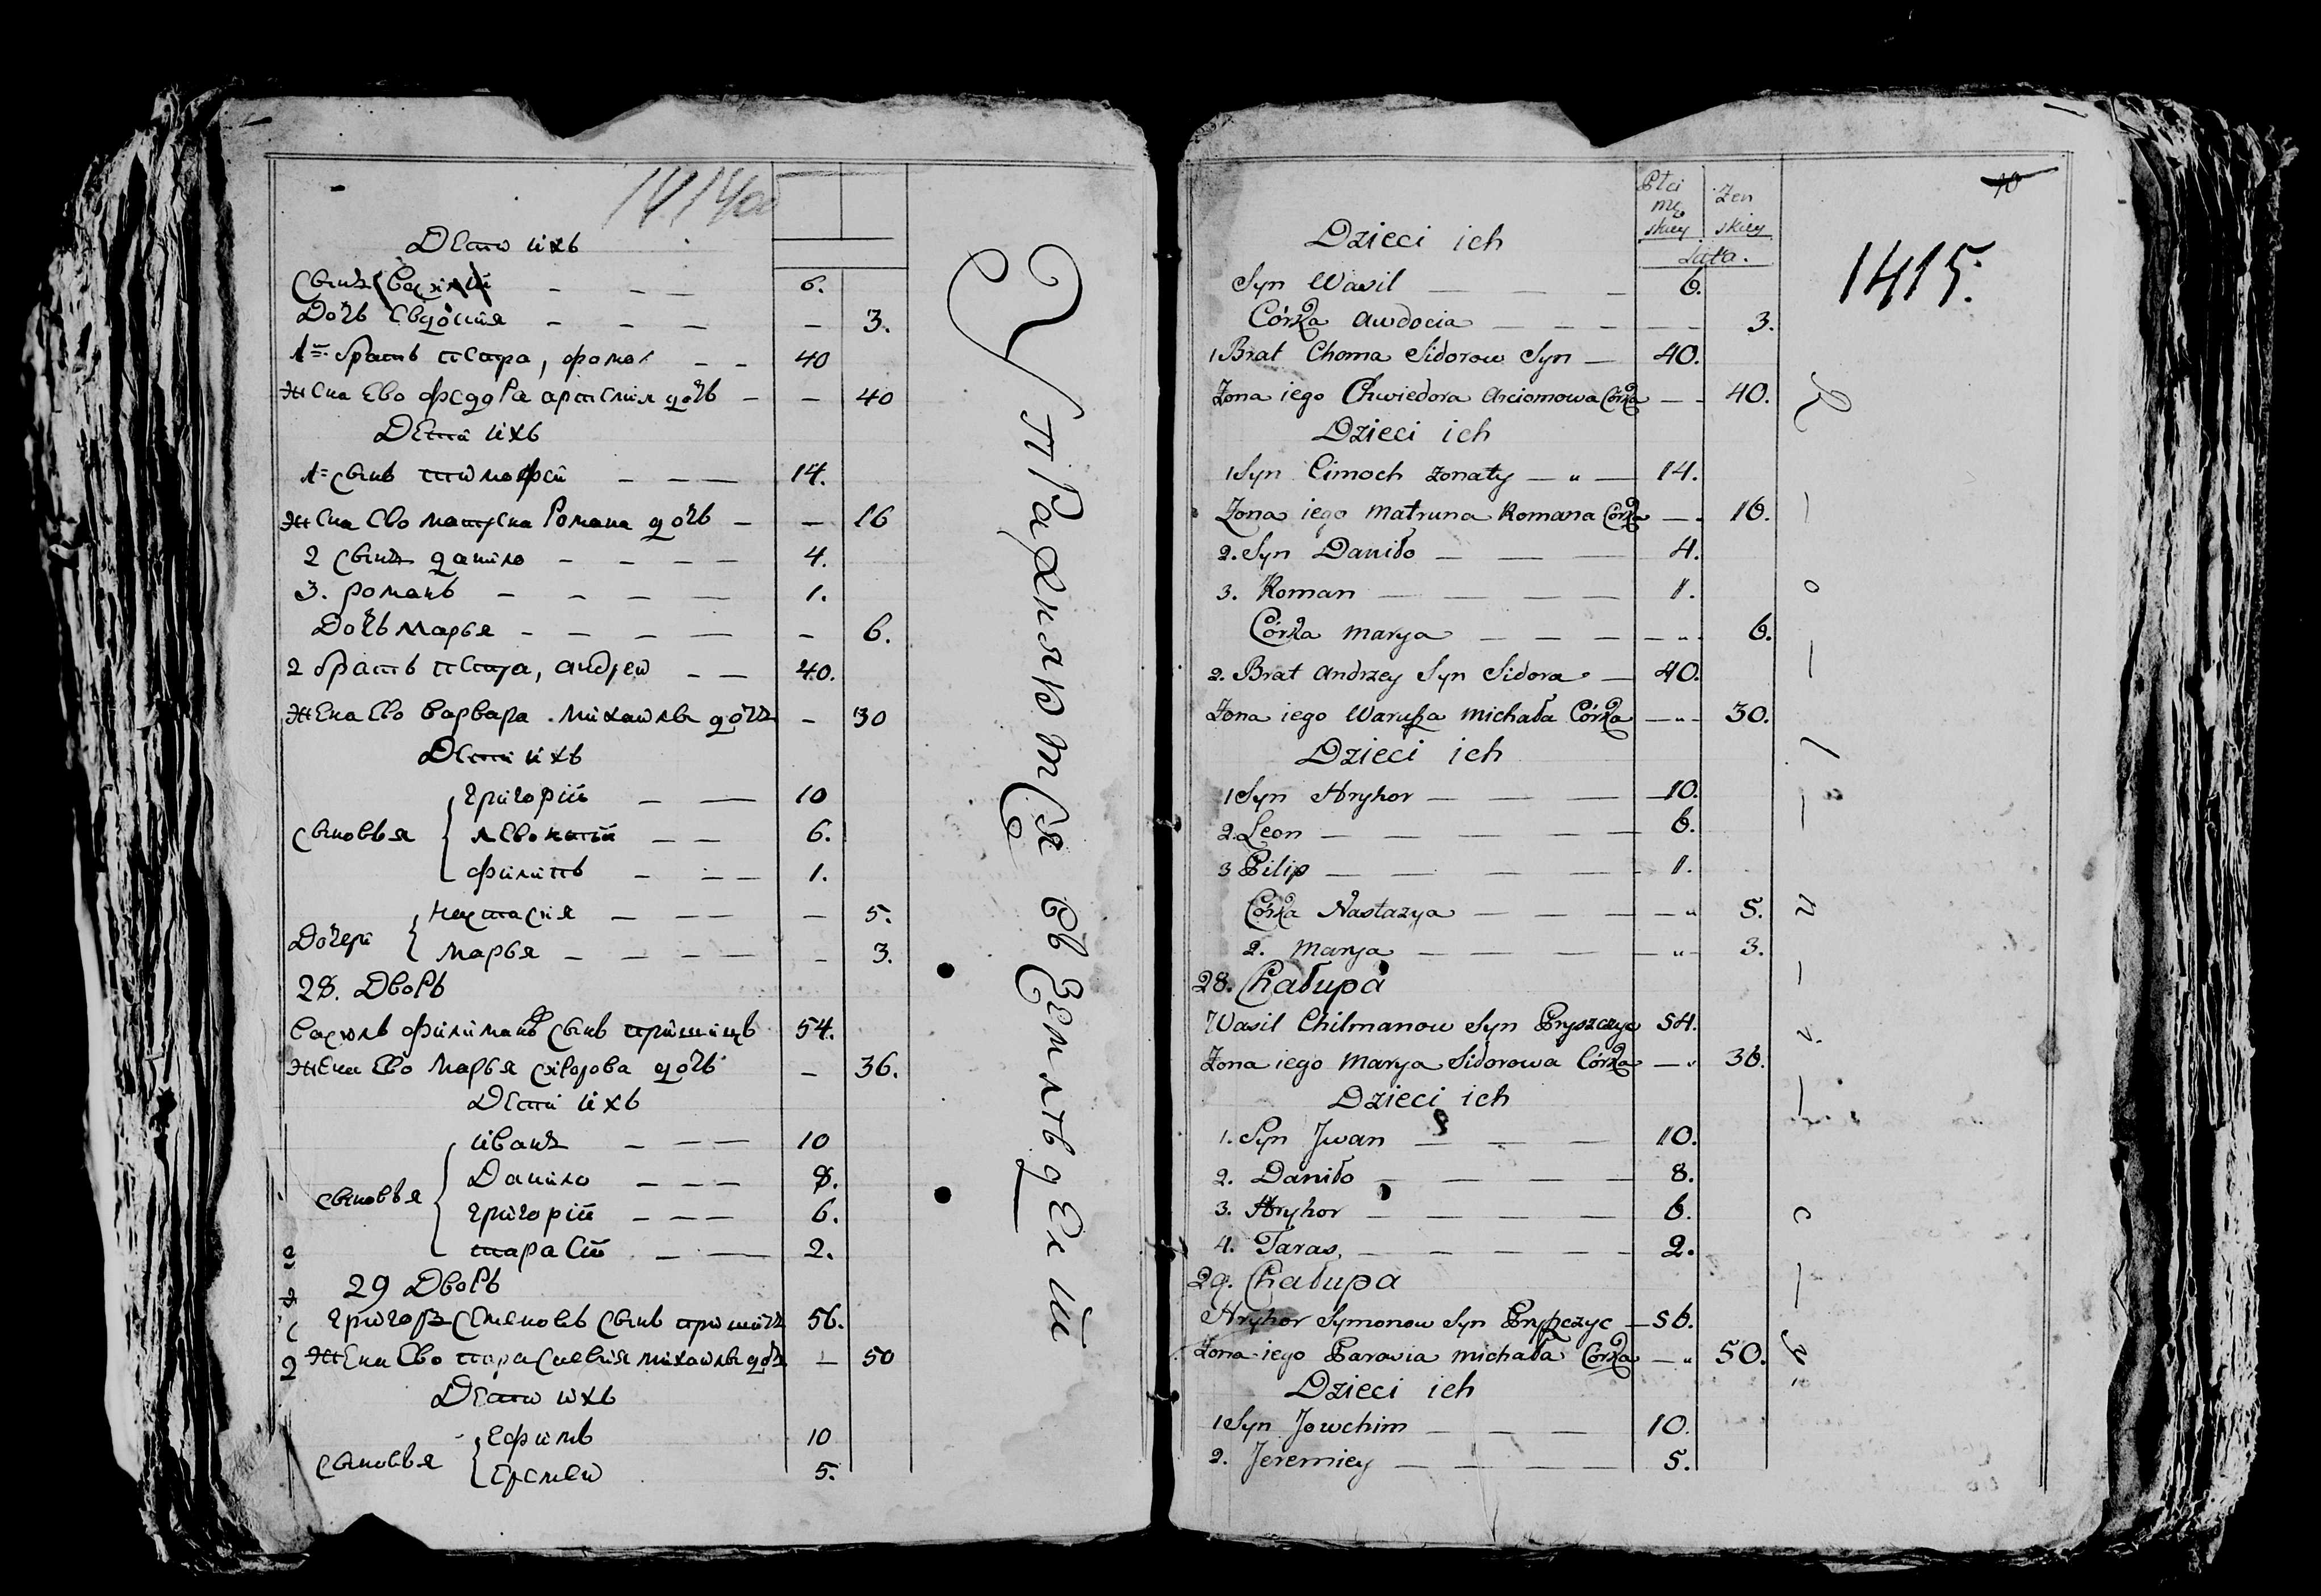 1414об
Дети ихъ
Сынъ Василий — — — 6.
Дочь Евдокия — — — — 3.
1й братъ петра, фома — — 40
Жена Ево федора артемия дочь — — 40
Дети ихъ
1й сынъ тимофей — — — 14.
Жена Ево матрена Романа дочь — — 16
2 сынъ данило — — — — 4.
3. романъ — — — — 1.
Дочь Марья — — — — — 6.
2 братъ петра, андрей — — 40.
Жена Ево варвара михаила дочь — 30
Дети ихъ
Сыновья { григорий — — 10
левонтий — — 6.
филипъ — — — 1.
Дочери { Настасия — — — — 5.
Марья — — — — — 3.
28. Дворъ
Василь филимановъ сынъ 54.
Жена Ево Марья сидорова дочь — 36.
Дети ихъ
Сыновья { иванъ — — — 10
Данило — — — 8.
григорий — — — 6.
тарасий — — 2.
29 Дворъ
григорь Семеновъ Сынъ 56.
Жена Ево парасковия михаила дочь — 50
Дети ихъ
Сыновья { Ефимъ 10
Еремей 5.
Упражняются в земледелии
10
1415.
Płci mę skiey
Żen skiey
Lata.
Dzieci ich
Syn Wasil — — — 6.
Córka Awdocia — — — — — 3.
1 Brat Choma Sidorow Syn — 40.
Żona iego Chwiedora Arciomowa Córka — — 40.
Dzieci ich
1 Syn Cimoch żonaty — " — 14.
Żona iego Matruna Romana Córka — 16.
2. Syn Daniło — — — 4.
3. Roman — — — — 1.
Córka Marya — — — — " 6.
2. Brat Andrzey Syn Sidora — 40.
Żona iego Waruka Michała Córka — " — 30.
Dzieci ich
1 Syn Hryhor — — — — 10.
2. Leon — — — — — 6.
3 Pilip — — — — — 1.
Córka Nastazya — — — — " 5.
2. Marya — — — — — " 3.
28. Chałupa
Wasil Chilmanow Syn Pryszczyc 54.
Żona iego Marya Sidorowa Córka — " 36.
Dzieci ich
1. Syn Jwan — — — 10.
2. Daniło — — — — 8.
3. Hryhor — — — — 6.
4. Taras, — — — — — 2.
29. Chałupa
Hryhor Symonow Syn — 56.
Żona iego Parasia Michała Córka — " 50.
Dzieci ich
1 Syn Jowchim — — — 10.
2. Jeremiey — — — — 5.
R — o — l — n — i — c — y.